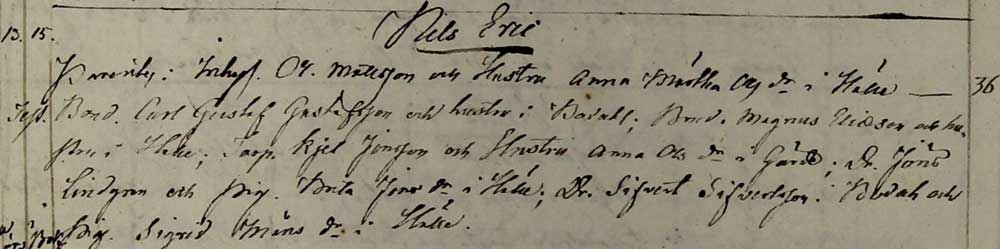 13. 15. Nils Eric
Parentes: Inhys. Ol. Mattsson och Hustru Anna Märtha Ols dr i Hälle — 36
Test. Bond. Carl Gustaf Gustafsson och hustru i ; Bond. Magnus och hu-
stru i Hälle; Torp. Kjel Jonsson och Hustru Anna Ols dr i Gärde; Dr. Jöns
Lindgren och Pig. Brita Jons dr i Hälle; Dr. Sifvert Sifvertsson i och
Pig. Sigrid Måns dr i Hälle.